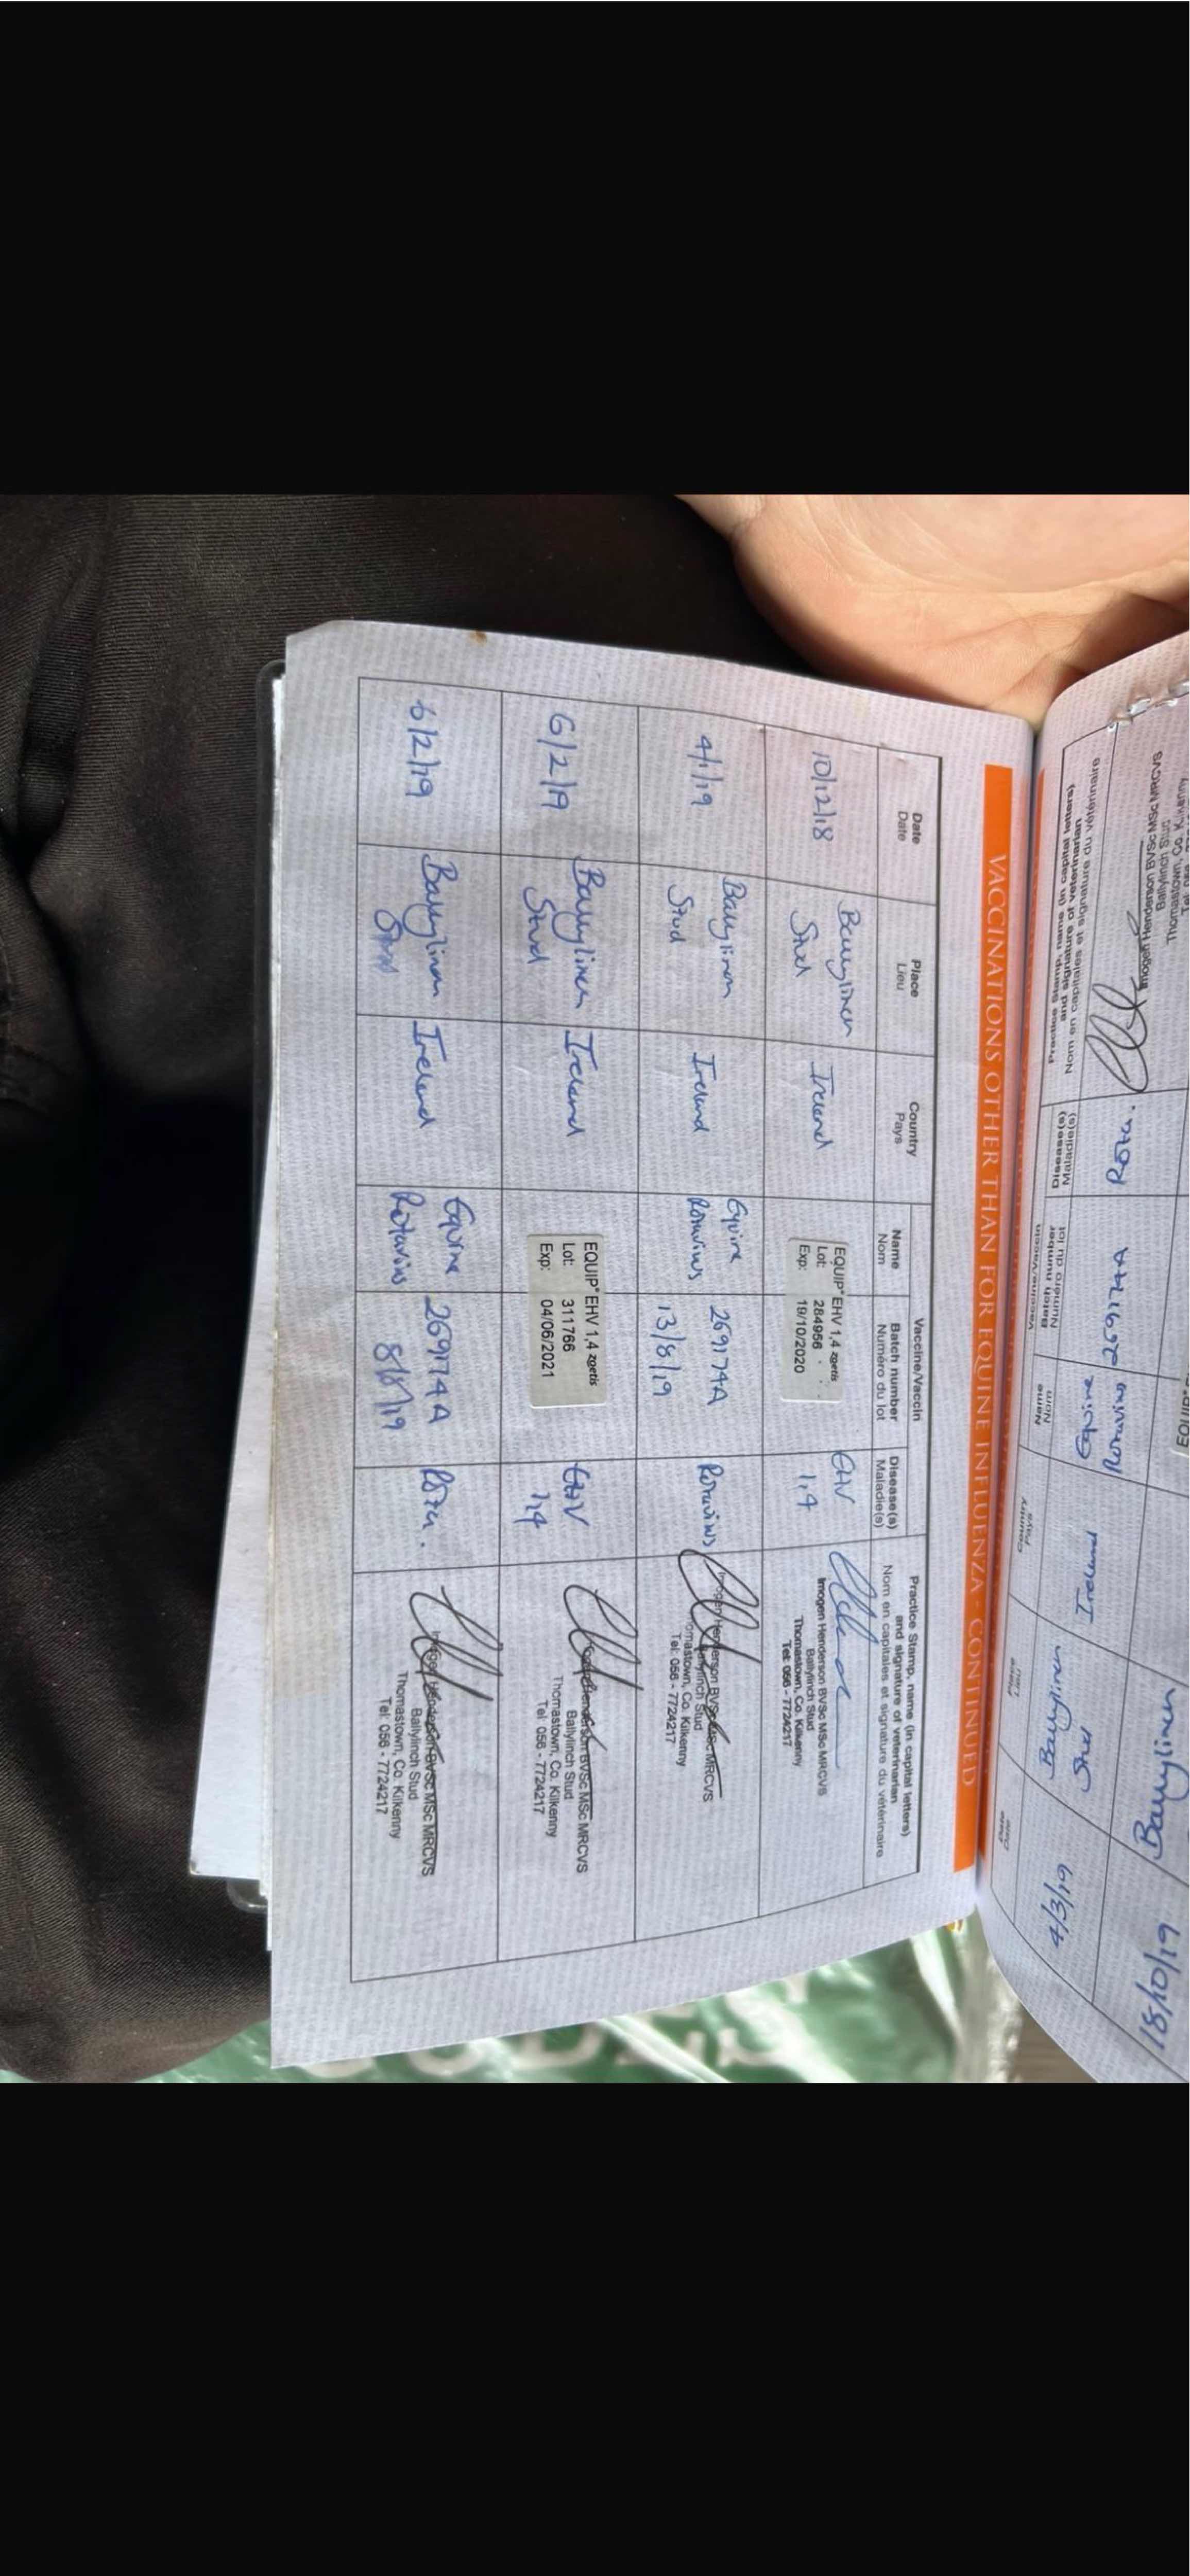 VACCINATIONS OTHER THAN FOR EQUINE INFLUENZA - CONTINUED
Date
Date
Place
Lieu
Country
Pays
Vaccine/Vaccin
Name
Nom
Batch number
Numéro du lot
Disease(s)
Maladie(s)
Practice Stamp, name (in capital letters)
and signature of veterinarian
Nom en capitales et signature du vétérinaire
10/12/18
Ballylinch
Stud
Ireland
EQUIP EHV 1,4 zoetis
Lot: 284956
Exp: 19/10/2020
EHV
1,4
Imogen Henderson BVSc MSc MRCVS
Ballylinch Stud
Thomastown, Co. Kilkenny
Tel: 056 - 7724217
4/1/19
Ballylinch
Stud
Ireland
Equine
Rotavirus
269174A
13/8/19
Rotavirus
Imogen Henderson BVSc MSc MRCVS
Ballylinch Stud
Thomastown, Co. Kilkenny
Tel: 056 - 7724217
6/2/19
Ballylinch
Stud
Ireland
EQUIP EHV 1,4 zoetis
Lot: 311766
Exp: 04/06/2021
EHV
1,4
Imogen Henderson BVSc MSc MRCVS
Ballylinch Stud
Thomastown, Co. Kilkenny
Tel: 056 - 7724217
6/2/19
Ballylinch
Stud
Ireland
Equine
Rotavirus
269174A
8/8/19
Rota.
Imogen Henderson BVSc MSc MRCVS
Ballylinch Stud
Thomastown, Co. Kilkenny
Tel: 056 - 7724217
Date
Date
Place
Lieu
Country
Pays
Vaccine/Vaccin
Name
Nom
Batch number
Numéro du lot
Disease(s)
Maladie(s)
Practice Stamp, name (in capital letters)
and signature of veterinarian
Nom en capitales et signature du vétérinaire
4/3/19
Ballylinch
Stud
Ireland
Equine
Rotavirus
269174A
Rota.
Imogen Henderson BVSc MSc MRCVS
Ballylinch Stud
Thomastown, Co. Kilkenny
18/10/19
Ballylinch